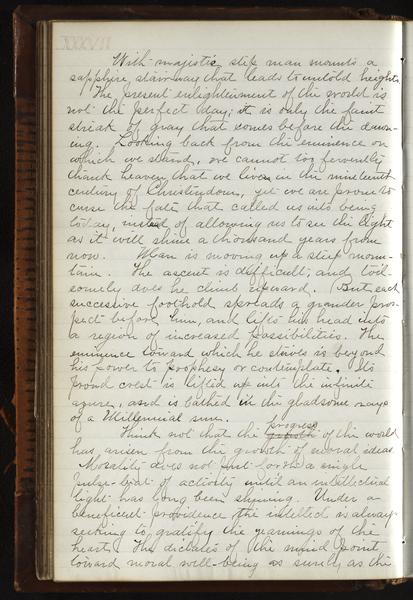 XXXVII
With majestic step man mounts a
sapphire stairway that leads to untold heights.
The present enlightenment of the world is
not the perfect day; it is only the faint
streak of gray that comes before the dawn-
ing. Looking back from the eminence on
which we stand, we cannot too fervently
thank heaven that we live in the nineteenth
century of Christendom, yet we are prone to
curse the fate that called us into being
today, instead of allowing us to see the light
as it will shine a thousand years from
now. Man is moving up a steep moun-
tain. The ascent is difficult; and toil-
somely does he climb upward. But each
successive foothold spreads a grander pros-
pect before him, and lifts his head into
a region of increased possibilities. The
eminence toward which he strives is beyond
his power to prophesy or contemplate. Its
proud crest is lifted up into the infinite
azure, and is bathed in the gladsome rays
of a Millennial sun.
Think not that the progress of the world
has arisen from the growth of moral ideas.
Morality does not put forth a single
pulse-beat of activity until an intellectual
light has long been shining. Under a
beneficent providence the intellect is always
seeking to gratify the yearnings of the
heart. The dictates of the mind point
toward moral well-being as surely as the